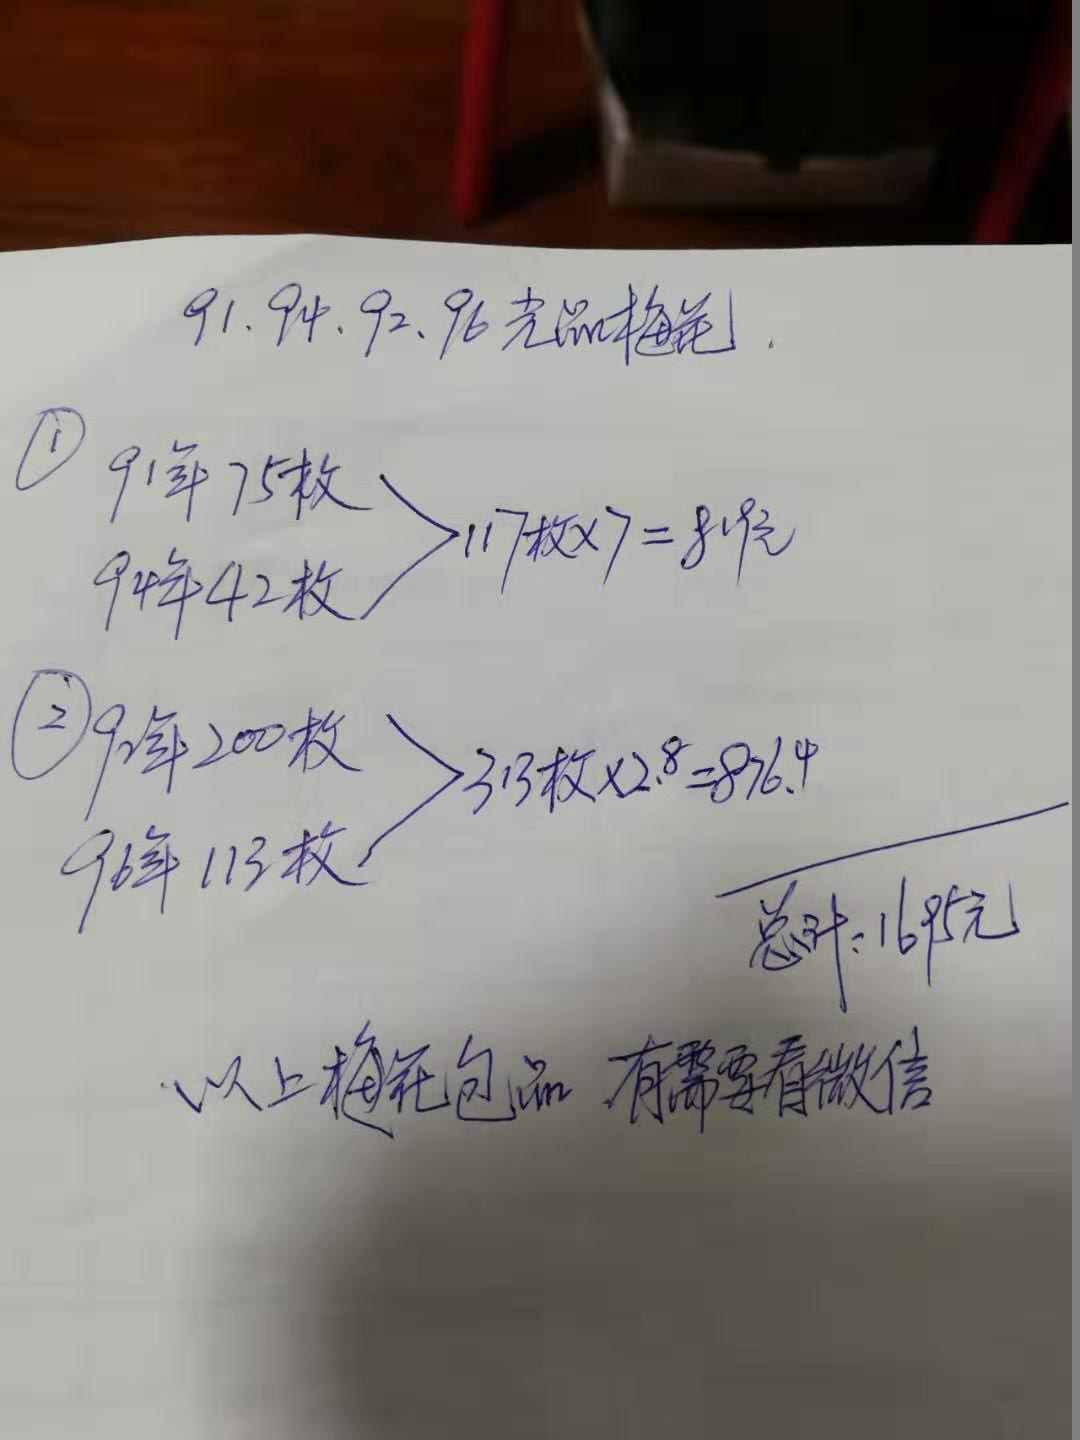 91.94、92、96光品梅花.
① 91年 75枚
94年 42枚
117枚×7=819元
② 92年 200枚
96年 113枚
313枚×2.8=876.4
总计:1695元
以上梅花包品 有需要看微信